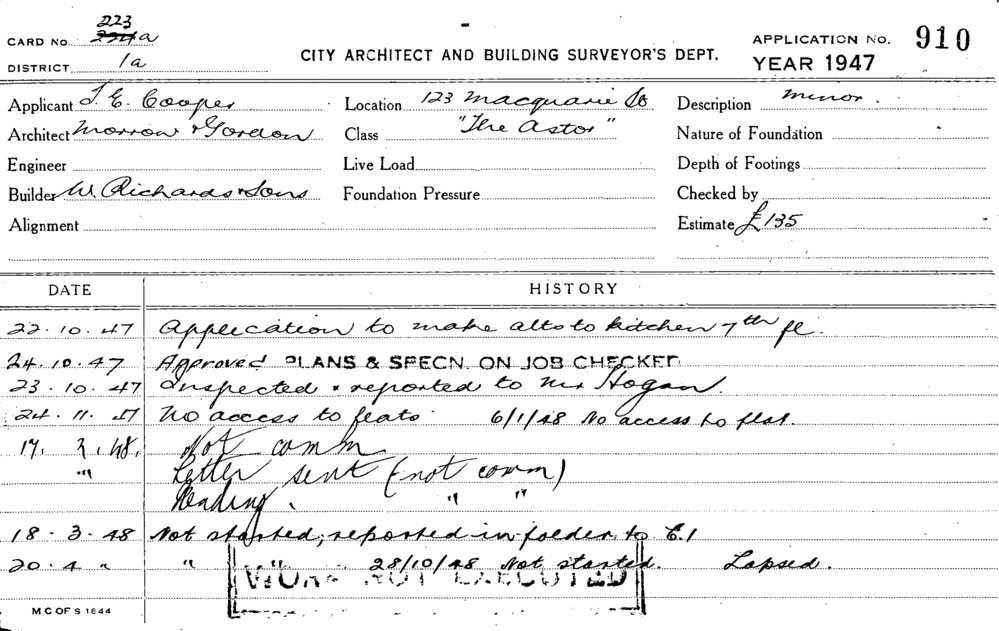 223
CARD No. 224a
DISTRICT 1a
CITY ARCHITECT AND BUILDING SURVEYOR'S DEPT.
APPLICATION No. 910
YEAR 1947
Applicant T. E. Cooper Location 123 Macquarie St Description minor.
Architect Morrow & Gordon Class "The Astor" Nature of Foundation
Engineer Live Load Depth of Footings
Builder W. Richards & Sons Foundation Pressure Checked by
Alignment Estimate £135
DATE HISTORY
22.10.47 Application to make alts to kitchen 7th fl.
24.10.47 Approved PLANS & SPECN. ON JOB CHECKED
23.10.47 Inspected & reported to Mr Hogan.
24.11.47 No access to flats. 6/1/48 No access to flat.
17. 2. 48. Not comm
" Letter sent (not comm)
Pending. " "
18.3.48 Not started, reported in folder to E.1
20.4 " " 28/10/48 Not started. Lapsed.
WORK NOT EXECUTED
M C OF S 1844